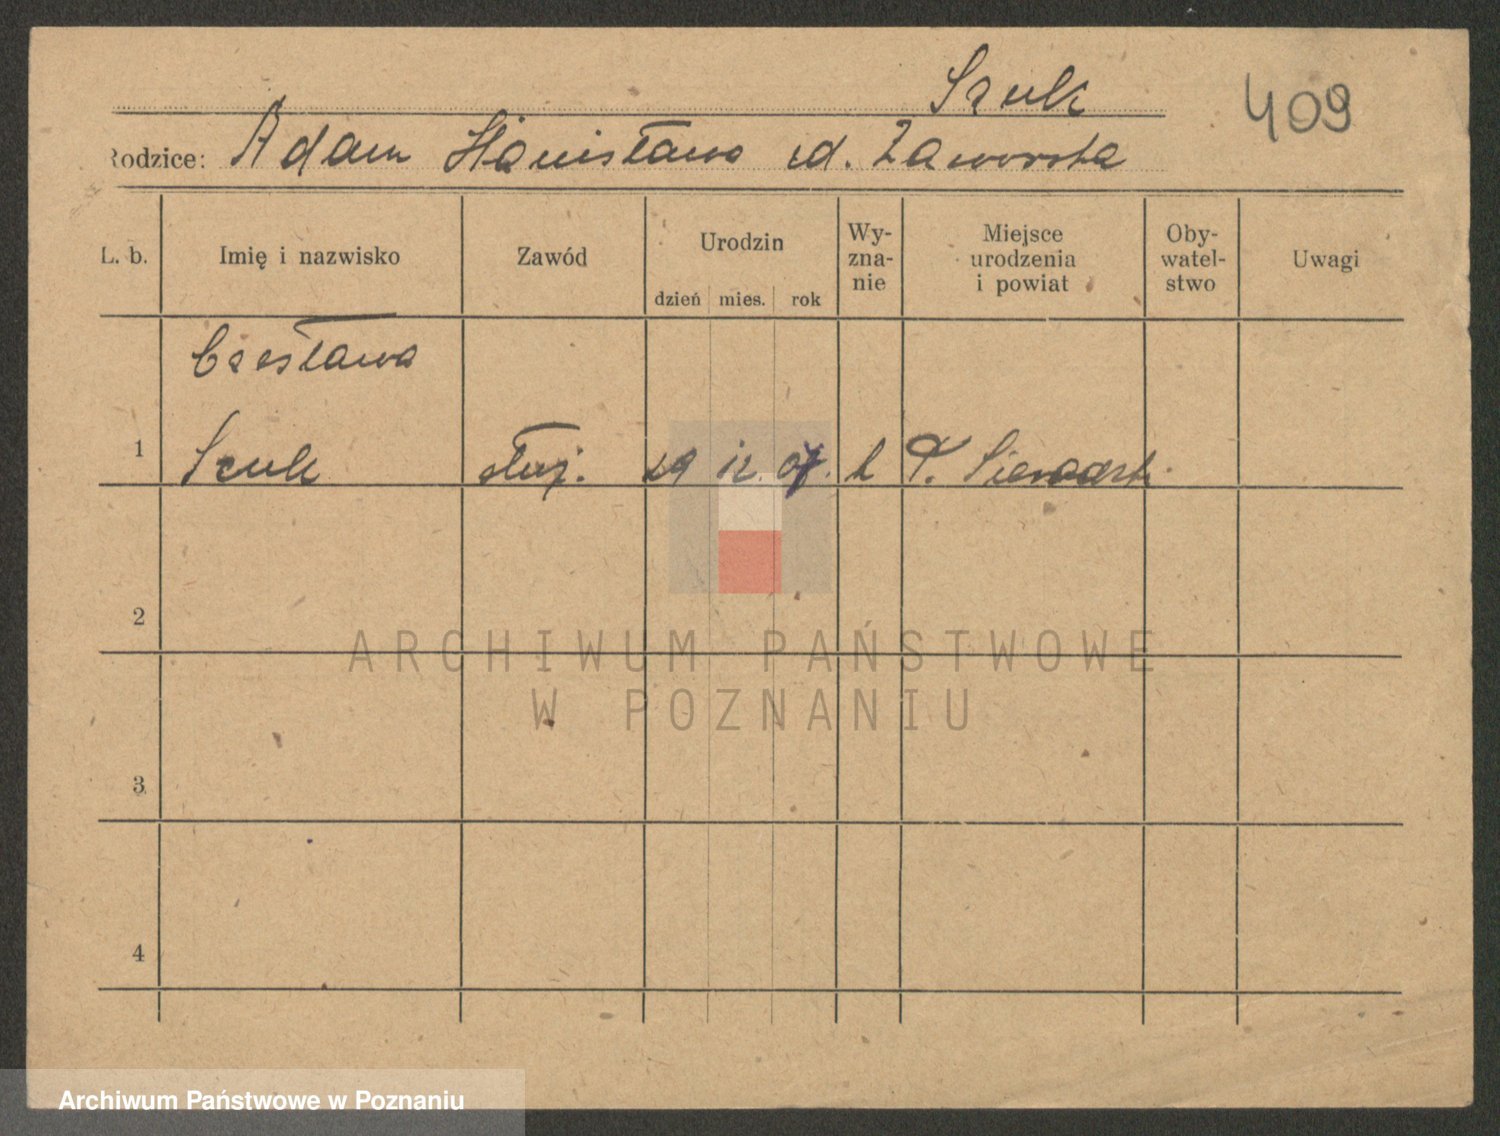 Szulc
409
Rodzice: Adam Stanisława zd. Zaworska
L. b.
Imię i nazwisko
Zawód
Urodzin
dzień mies. rok
Wy-
zna-
nie
Miejsce
urodzenia
i powiat
Oby-
watel-
stwo
Uwagi
1
Czesława
Szulc
służ.
12. 07.
k
Sieradz
2
3
4
ARCHIWUM PAŃSTWOWE
W POZNANIU
Archiwum Państwowe w Poznaniu